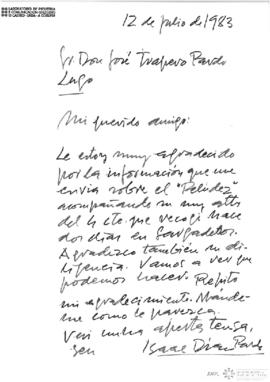 LABORATORIO DE INDUSTRIA
E COMUNICACION
O CASTRO · SADA · A CORUÑA
12 de julio de 1983
Sr. Don José Trapero Pardo
Lugo
Mi querido amigo:
Le estoy muy agradecido
por la información que me
envia sobre el "Peludez"
acompañando su muy atta
del 4 cte. que recogí hace
dos días en Sargadelos.
Agradezco también su di-
ligencia. Vamos a ver que
podemos hacer. Repito
mi agradecimiento. Mande-
me como le parezca.
unha aperta tensa,
Isaac Díaz Pardo